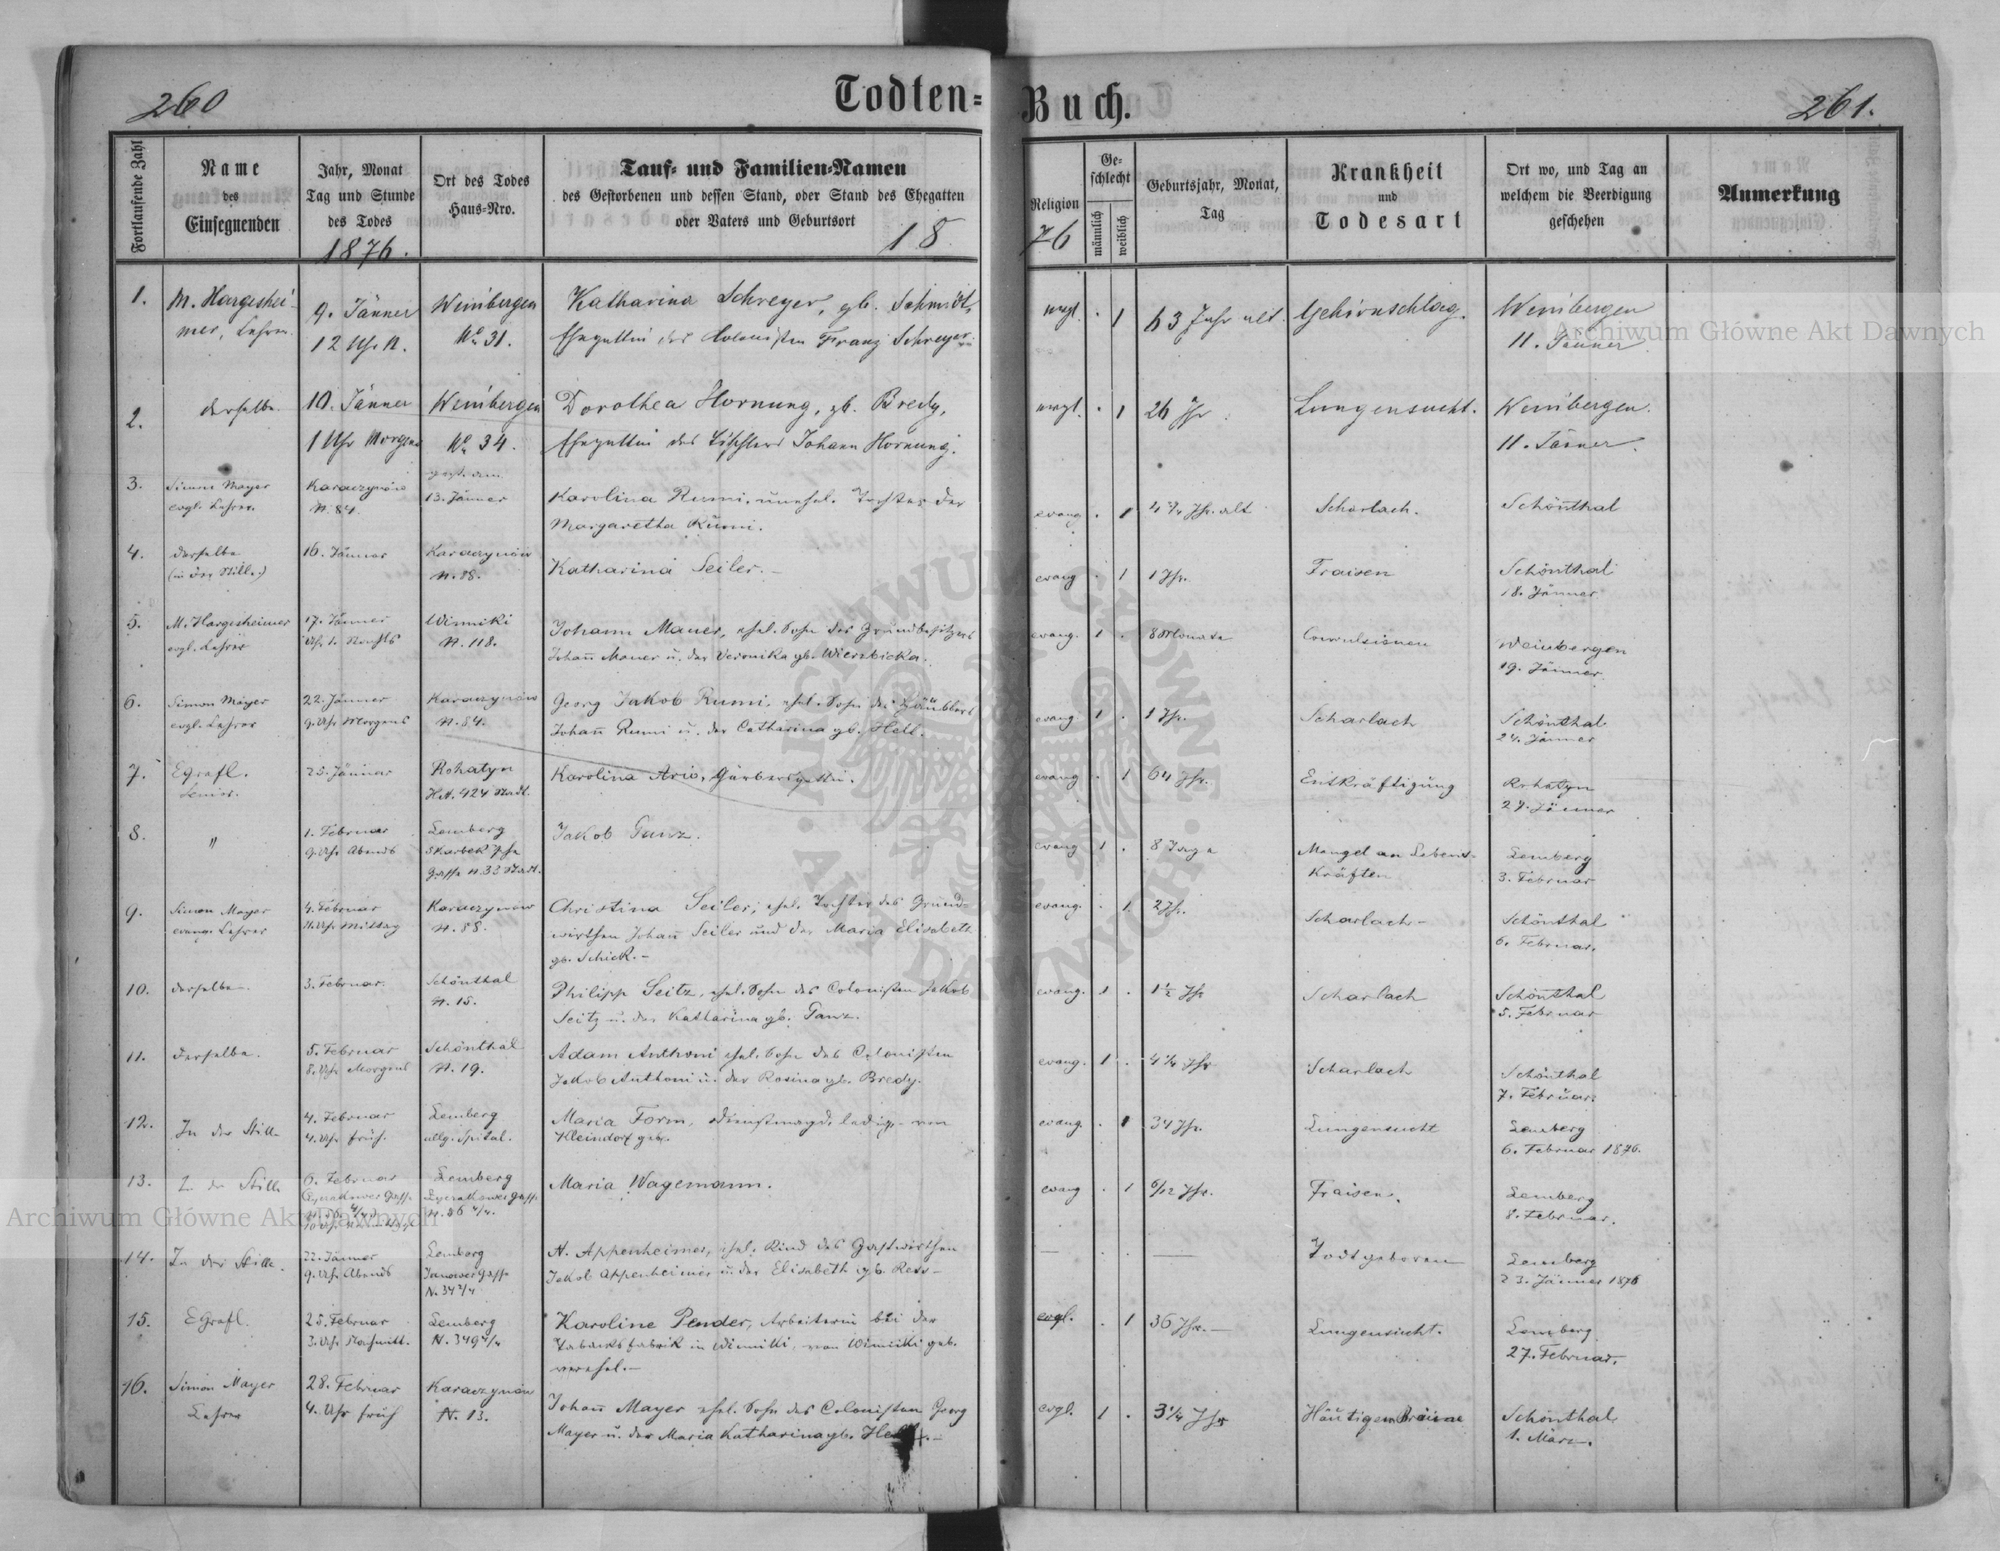 260
Todten=
Buch.
261.
Fortlaufende Zahl
Name
des
Einsegnenden
Jahr, Monat
Tag und Stunde
des Todes
1876.
Ort des Todes
Haus=Nro.
Tauf= und Familien=Namen
des Gestorbenen und dessen Stand, oder Stand des Ehegatten
oder Vaters und Geburtsort
18
Religion
76
Ge=
schlecht
männlich
weiblich
Geburtsjahr, Monat,
Tag
Krankheit
und
Todesart
Ort wo, und Tag an
welchem die Beerdigung
geschehen
Anmerkung
1.
M. Hargeshei-
mer, Lehrer.
9. Jänner
12 Uhr N.
Weinbergen
No 31.
Katharina Schreyer, gb. Schmidt,
Ehegattin des Kolonisten Franz Schreyer.
evgl.
1
63 Jahr alt.
Gehirnschlag.
Weinbergen
11. Jänner
2.
derselbe.
10. Jänner
1 Uhr Morgens
Weinbergen
No 34.
Dorothea Hornung, gb. Bredy,
Ehegattin des Tischlers Johann Hornung.
evgl.
1
26 Jhr.
Lungensucht.
Weinbergen.
11. Jänner.
3.
Simon Mayer
evgl. Lehrer.
Karaczynów
N. 84.
13. Jänner
Karolina Rumi, unehel. Tochter der
Margaretha Rumi.
evang
1
Jhr. alt
Scharlach.
Schönthal
4.
derselbe
(in der Stille)
16. Jänner
Karaczynów
N. 88.
Katharina Seiler.-
evang
1
1 Jhr.
Fraisen
Schönthal
18. Jänner
5.
M. Hargesheimer
evgl. Lehrer
17. Jänner
Uhr 1. Nachts
Winniki
N. 118.
Johann Mauer, ehel. Sohn des Grundbesitzers
Johañ Mauer u. der Veronika gb. Wierzbicka.
evang.
1
8 Monate
Convulsionen
Weinbergen
19. Jänner.
6.
Simon Mayer
evgl. Lehrer
22. Jänner
9. Uhr Morgens
Karaczynów
N. 84.
Georg Jakob Rumi, ehel. Sohn des
Johañ Rumi u. der Catharina gb. Hell.
evang
1
1 Jhr.
Scharlach
Schönthal
24. Jänner
7.
EGrafl.
Senior.
25. Jänner
Rohatyn
424 Stadt.
Karolina Ario, Gärbersgattin.
evang
1
64 Jhr.
Entkräftigung
Rohatyn
27. Jänner
8.
"
1. Februar
9. Uhr Abends
Lemberg
Skarbek'sche
Gasse N. 32 Stadt.
Jakob Ganz.
evang
1
8 Tage
Mangel an Lebens-
kräften
Lemberg
3. Februar
9.
Simon Mayer
evang. Lehrer
4. Februar
11. Uhr Mittag
Karaczynów
N. 88.
Christina Seiler, ehel. Tochter des Grund-
wirthen Johañ Seiler und der Maria Elisabeth
gb. Schick.-
evang.
1
2 Jhr.
Scharlach-
Schönthal
6. Februar.
10.
derselbe.
3. Februar.
Schönthal
N. 15.
Philipp Seitz, ehel. Sohn des Colonisten Jakob
Seitz u. der Katharina gb. Ganz.
evang.
1
1 1/2 Jhr
Scharlach
Schönthal
5. Februar
11.
derselbe.
5. Februar
8. Uhr Morgens
Schönthal
N. 19.
Adam Anthoni ehel. Sohn des Colonisten
Jakob Anthoni u. der Rosina gb. Bredy.
evang.
1
4 1/4 Jhr
Scharlach
Schönthal
7. Februar.
12.
In der Stille
4. Februar
4. Uhr früh.
Lemberg
allg. Spital.
Maria Form, Dienstmagd, ledig, von
Kleindorf geb.
evang.
1
34 Jhr.
Lungensucht
Lemberg
6. Februar 1876.
13.
I. der Stille
6. Februar
Lemberg
Maria Wagemann.
evang
1
6/12 Jhr.
Fraisen.
Lemberg
8. Februar.
14.
In der Stille.
22. Jänner
9. Uhr Abends
Lemberg
Janower Gasse
N. 34 2/4
N. Appenheimer, ehel. Kind des Gastwirthen
Jakob Appenheimer u. der Elisabeth gb.
Todtgeboren
Lemberg
23. Jänner 1876
15.
EGrafl.
25. Februar
3. Uhr Nachmitt.
Lemberg
N. 349 4/4
Karoline Pender, Arbeiterin bei der
Tabacksfabrik in Winniki, von Winniki geb.
verehel.-
evgl.
1
36 Jhr.-
Lungensucht.
Lemberg
27. Februar.
16.
Simon Mayer
Lehrer
28. Februar
4. Uhr früh
Karaczynów
N. 13.
Johañ Mayer ehel. Sohn des Colonisten Georg
Mayer u. der Maria Katharina gb.
evgl.
1
3 1/4 Jhr
Häutigen Bräune
Schönthal
1. März.
Archiwum Główne Akt Dawnych
Archiwum Główne Akt Dawnych
ARCHIWUM GŁÓWNE AKT DAWNYCH